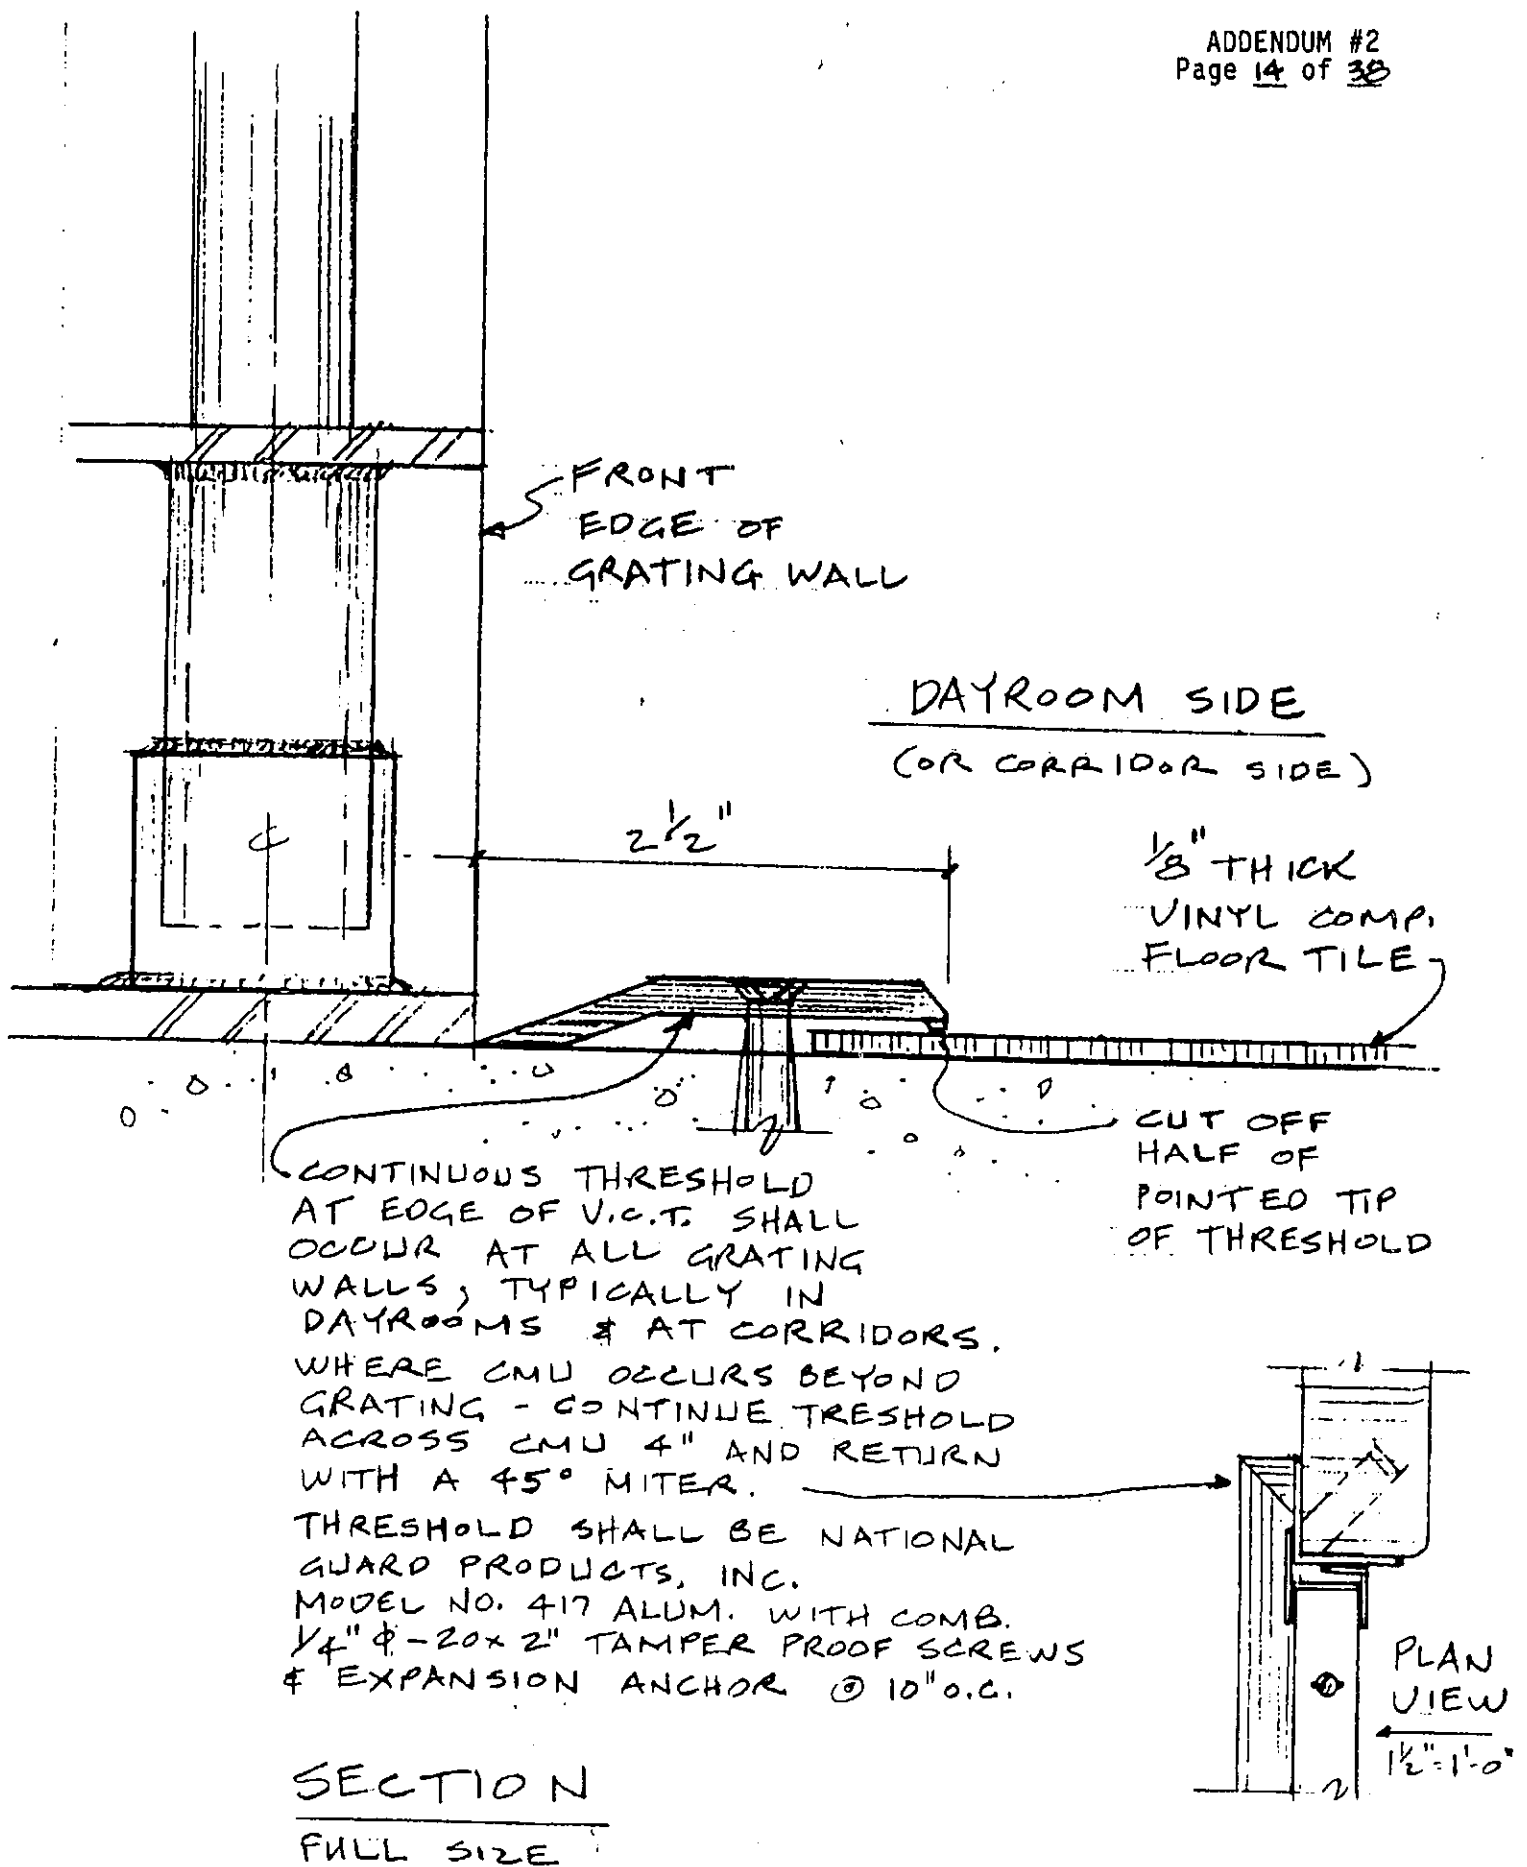 ADDENDUM #2
Page 14 of 38
FRONT
EDGE OF
GRATING WALL
DAYROOM SIDE
(OR CORRIDOR SIDE)
2 1/2"
1/8" THICK
VINYL COMP.
FLOOR TILE
CUT OFF
HALF OF
POINTED TIP
OF THRESHOLD
CONTINUOUS THRESHOLD
AT EDGE OF V.C.T. SHALL
OCCUR AT ALL GRATING
WALLS, TYPICALLY IN
DAYROOMS & AT CORRIDORS.
WHERE CMU OCCURS BEYOND
GRATING - CONTINUE TRESHOLD
ACROSS CMU 4" AND RETURN
WITH A 45° MITER.
THRESHOLD SHALL BE NATIONAL
GUARD PRODUCTS, INC.
MODEL NO. 417 ALUM. WITH COMB.
1/4" ϕ - 20 x 2" TAMPER PROOF SCREWS
& EXPANSION ANCHOR @ 10" O.C.
PLAN
VIEW
1 1/2" = 1'-0"
SECTION
FULL SIZE